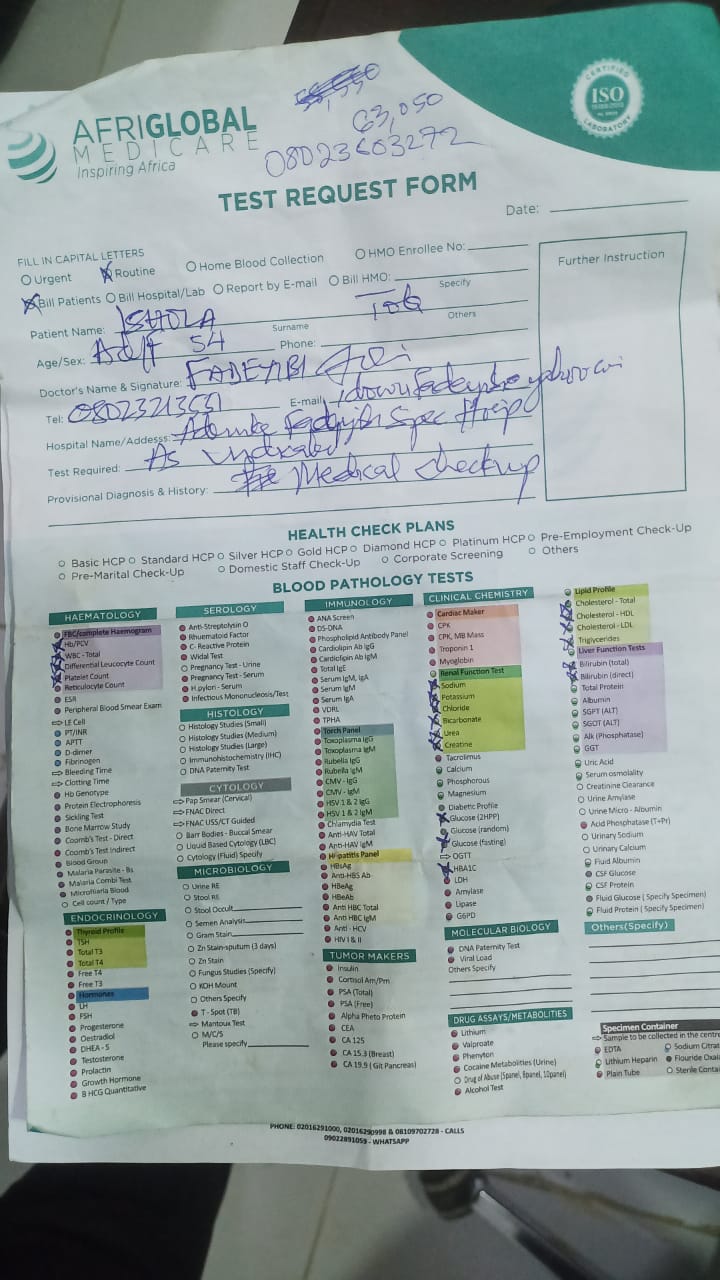 63,050
08023603272
AFRIGLOBAL
MEDICARE
Inspiring Africa
CERTIFIED
ISO
LABORATORY
TEST REQUEST FORM
Date:
FILL IN CAPITAL LETTERS
Urgent Routine Home Blood Collection HMO Enrollee No:
Bill Patients Bill Hospital/Lab Report by E-mail Bill HMO:
Specify
Further Instruction
Patient Name: ISHOLA
Surname Others
Age/Sex: Adult 54 Phone:
Doctor's Name & Signature: FADEYIBI
Tel: E-mail
Hospital Name/Addesss:
Test Required: As indicated
Provisional Diagnosis & History: Medical checkup
HEALTH CHECK PLANS
Basic HCP Standard HCP Silver HCP Gold HCP Diamond HCP Platinum HCP Pre-Employment Check-Up
Pre-Marital Check-Up Domestic Staff Check-Up Corporate Screening Others
BLOOD PATHOLOGY TESTS
HAEMATOLOGY
FBC/complete Haemogram
Hb/PCV
WBC - Total
Differential Leucocyte Count
Platelet Count
Reticulocyte Count
ESR
Peripheral Blood Smear Exam
LE Cell
PT/INR
APTT
D-dimer
Fibrinogen
Bleeding Time
Clotting Time
Hb Genotype
Protein Electrophoresis
Sickling Test
Bone Marrow Study
Coomb's Test - Direct
Coomb's Test Indirect
Blood Group
Malaria Parasite - Bs
Malaria Combi Test
Microfilaria Blood
Cell count / Type
ENDOCRINOLOGY
Thyroid Profile
TSH
Total T3
Total T4
Free T4
Free T3
Hormones
LH
FSH
Progesterone
Oestradiol
DHEA - S
Testosterone
Prolactin
Growth Hormone
B HCG Quantitative
SEROLOGY
Anti-Streptolysin O
Rheumatoid Factor
C- Reactive Protein
Widal Test
Pregnancy Test - Urine
Pregnancy Test - Serum
H.pylori - Serum
Infectious Mononucleosis/Test
HISTOLOGY
Histology Studies (Small)
Histology Studies (Medium)
Histology Studies (Large)
Immunohistochemistry (IHC)
DNA Paternity Test
CYTOLOGY
Pap Smear (Cervical)
FNAC Direct
FNAC USS/CT Guided
Barr Bodies - Buccal Smear
Liquid Based Cytology (LBC)
Cytology (Fluid) Specify
MICROBIOLOGY
Urine RE
Stool RE
Stool Occult
Semen Analysis
Gram Stain
Zn Stain-sputum (3 days)
Zn Stain
Fungus Studies (Specify)
KOH Mount
Others Specify
T - Spot (TB)
Mantoux Test
M/C/S
Please specify
IMMUNOLOGY
ANA Screen
DS-DNA
Phospholipid Antibody Panel
Cardiolipin Ab IgG
Cardiolipin Ab IgM
Total IgE
Serum IgM, IgA
Serum IgM
Serum IgA
VDRL
TPHA
Torch Panel
Toxoplasma IgG
Toxoplasma IgM
Rubella IgG
Rubella IgM
CMV - IgG
CMV - IgM
HSV 1 & 2 IgG
HSV 1 & 2 IgM
Chlamydia Test
Anti-HAV Total
Anti-HAV IgM
Hepatitis Panel
HBsAg
Anti-HBS Ab
HBeAg
HBeAb
Anti HBC Total
Anti HBC IgM
Anti - HCV
HIV I & II
TUMOR MAKERS
Insulin
Cortisol Am/Pm
PSA (Total)
PSA (Free)
Alpha Pheto Protein
CEA
CA 125
CA 15.3 (Breast)
CA 19.9 ( Git Pancreas)
CLINICAL CHEMISTRY
Cardiac Maker
CPK
CPK, MB Mass
Troponin 1
Myoglobin
Renal Function Test
Sodium
Potassium
Chloride
Bicarbonate
Urea
Creatine
Tacrolimus
Calcium
Phosphorous
Magnesium
Diabetic Profile
Glucose (2HPP)
Glucose (random)
Glucose (fasting)
OGTT
HBA1C
LDH
Amylase
Lipase
G6PD
MOLECULAR BIOLOGY
DNA Paternity Test
Viral Load
Others Specify
DRUG ASSAYS/METABOLITIES
Lithium
Valproate
Phenyton
Cocaine Metabolities (Urine)
Drug of Abuse (5panel, 8panel, 10panel)
Alcohol Test
Lipid Profile
Cholesterol - Total
Cholesterol - HDL
Cholesterol - LDL
Triglycerides
Liver Function Tests
Bilirubin (total)
Bilirubin (direct)
Total Protein
Albumin
SGPT (ALT)
SGOT (ALT)
Alk (Phosphatase)
GGT
Uric Acid
Serum osmolality
Creatinine Clearance
Urine Amylase
Urine Micro - Albumin
Acid Phosphatase (T+Pr)
Urinary Sodium
Urinary Calcium
Fluid Albumin
CSF Glucose
CSF Protein
Fluid Glucose ( Specify Specimen)
Fluid Protein ( Specify Specimen)
Others(Specify)
Specimen Container
Sample to be collected in the centre
EDTA Sodium Citrat
Lithium Heparin Flouride Oxal
Plain Tube Sterile Contai
PHONE: 02016291000, 02016290998 & 08109702728 - CALLS
09022891059 - WHATSAPP